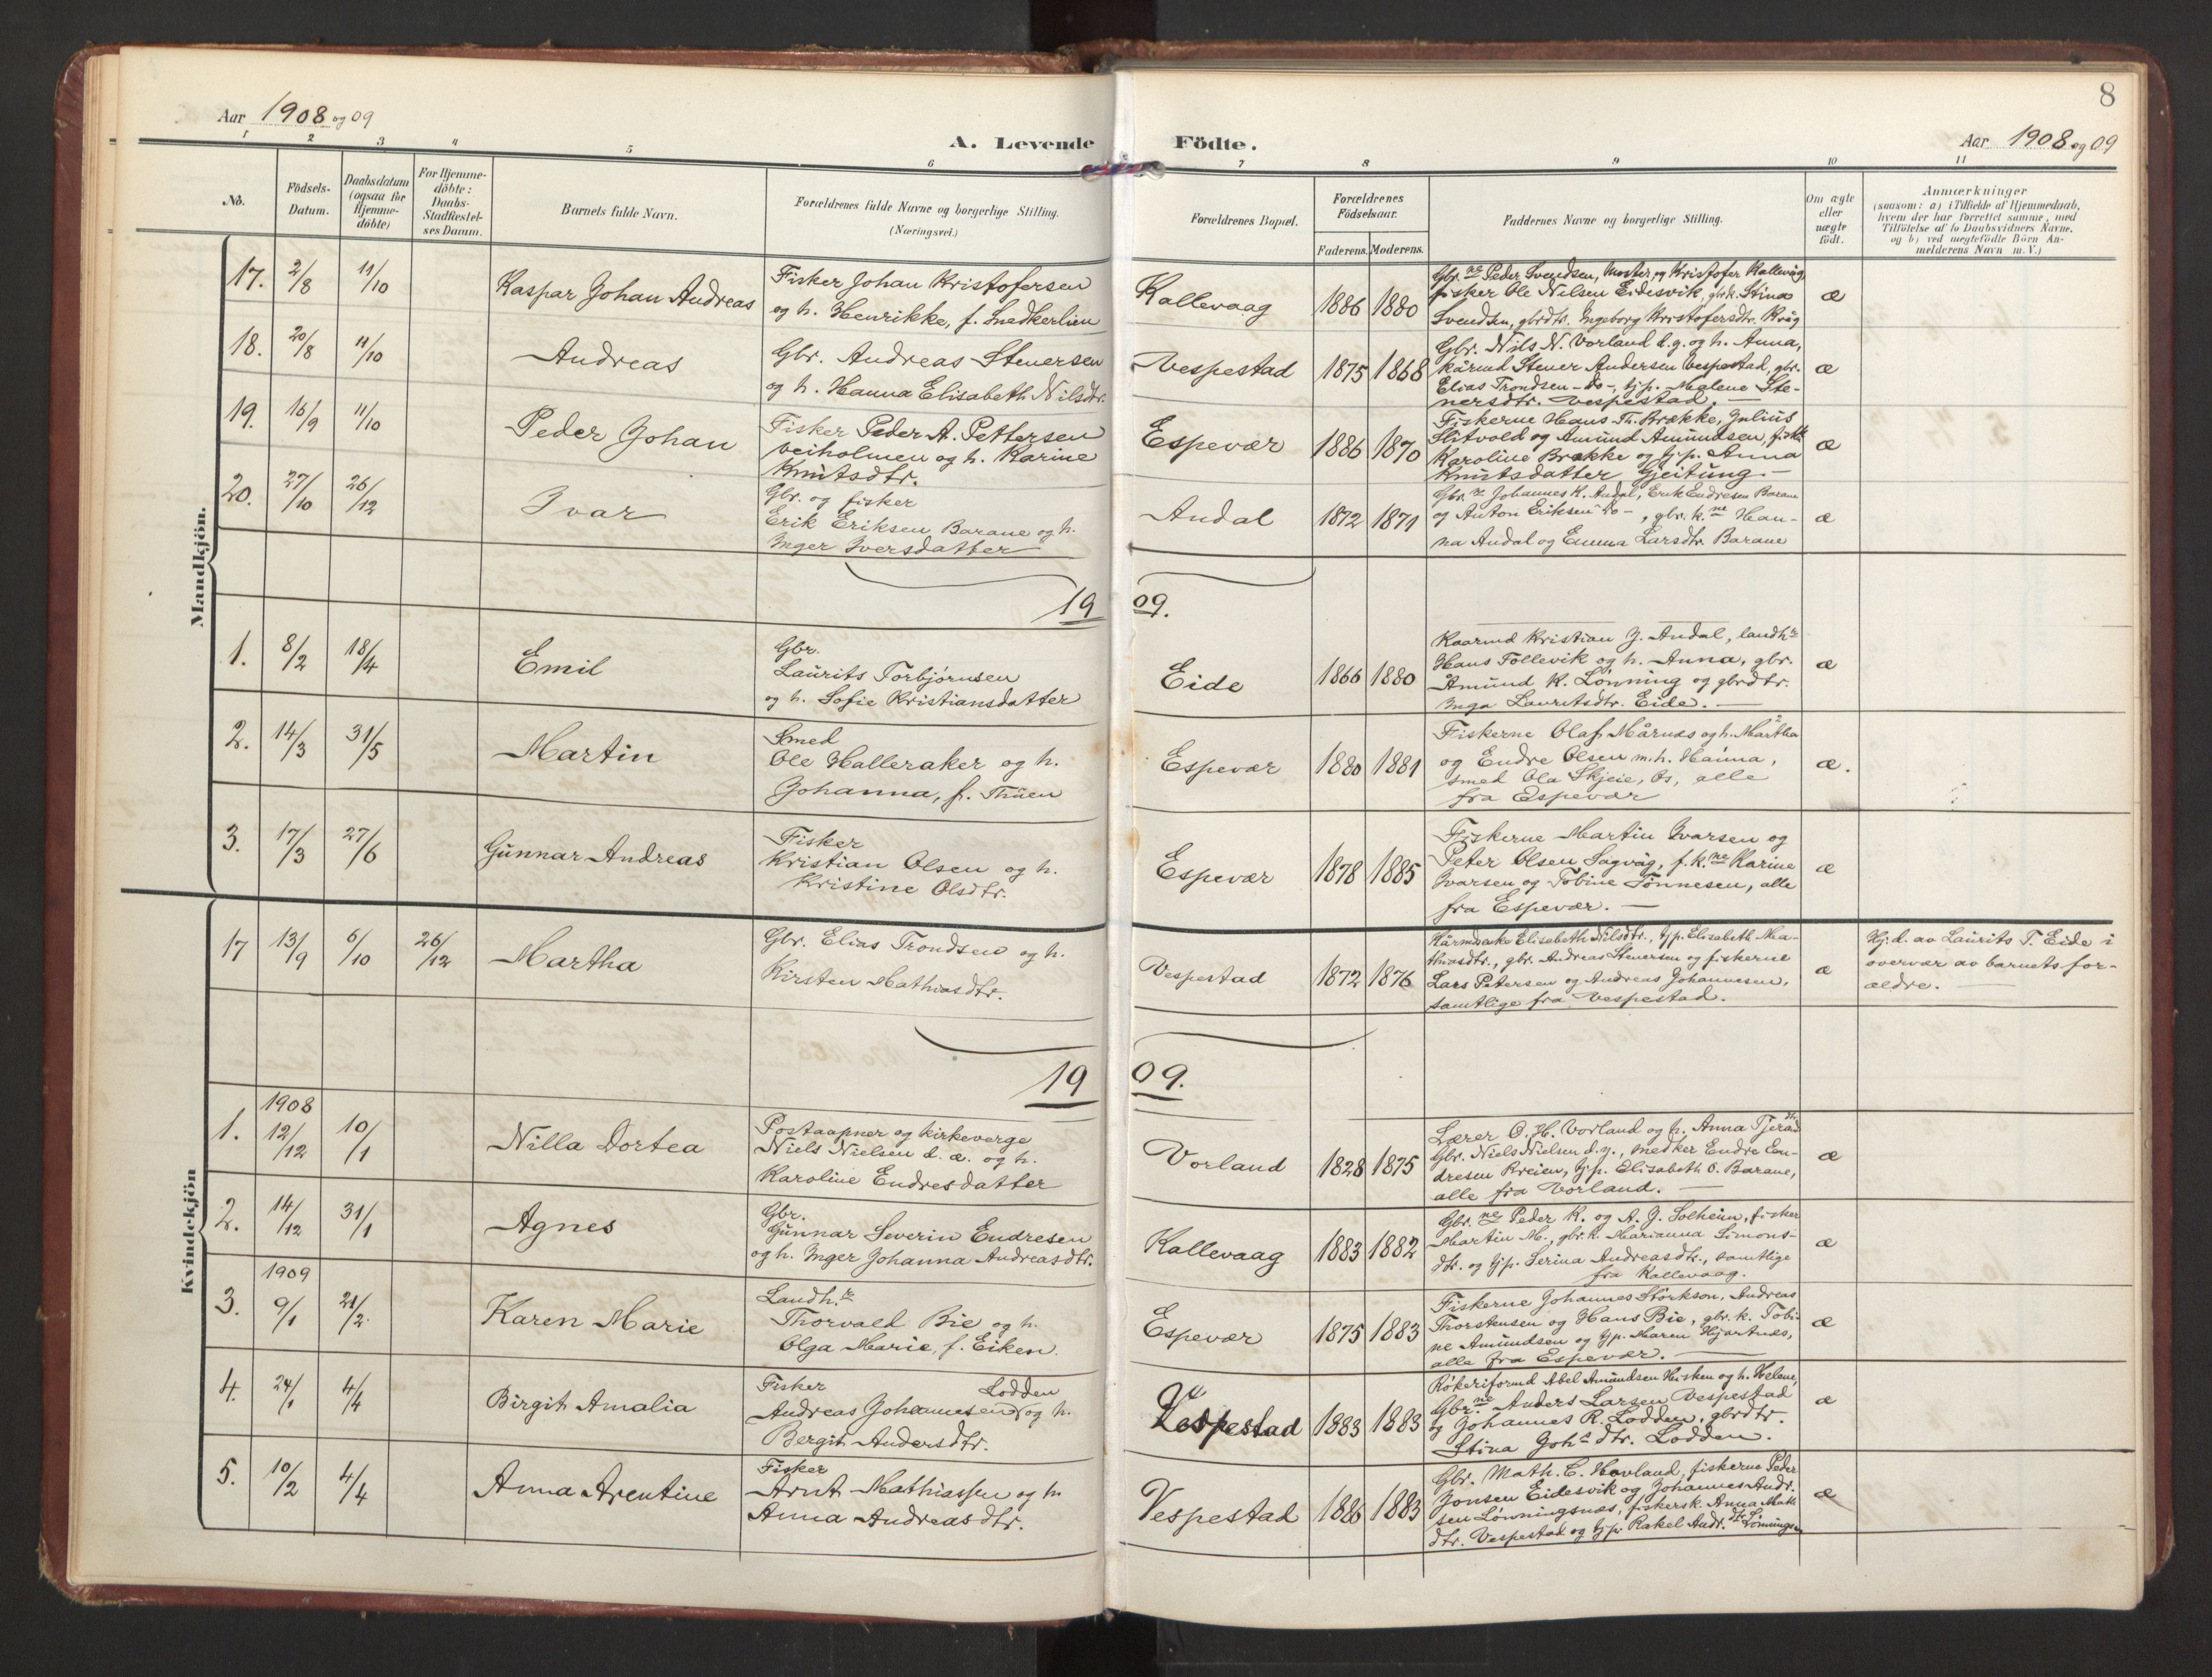 8
Aar 1908 og 09
A. Levende Födte.
Aar 1908 og 09
1 2 3 4 5 6 7 8 9 10 11
No.
Födsels-
Datum.
Daabsdatum
(ogsaa for
Hjemme-
döbte)
For Hjemme-
döbte:
Daabs-
Stadfæstel-
ses Datum.
Barnets fulde Navn.
Forældrenes fulde Navne og borgerlige Stilling.
(Næringsvei.)
Forældrenes Bopæl.
Forældrenes
Födselsaar.
Faderens. Moderens.
Faddernes Navne og borgerlige Stilling.
Om ægte
eller
uægte
födt.
Anmærkninger
(saasom: a) i Tilfælde af Hjemmedaab,
hvem der har forrettet samme, med
Tilföielse af to Daabsvidners Navne,
og b) ved uægtefödte Börn An-
melderens Navn m. V.)
Mandkjön.
17. 2/8 11/10 Kaspar Johan Andreas
Fisker Johan Kristofersen
og h. Henrikke, f. Snedkerlien
Kallevaag 1886 1880
Gbr.ne Peder Svendsen, Moster, og Kristofer Kallevåg,
fisker Ole Nilsen Eidesvik, gbrk. Stina
Svendsen, gbrdtr. Ingeborg Kristofersdtr. Kvåg
æ
18. 20/8 11/10 Andreas
Gbr. Andreas Stenersen
og h. Hanna Elisabeth Nilsdtr.
Vespestad 1875 1868
Gbr. Nils N. Vorland d.y. og h. Anna,
kårmd Stener Andersen Vespestad, gbr.
Elias Trondsen -do-, tjp. Malene Ste-
nersdtr. Vespestad. —
æ
19. 16/9 11/10 Peder Johan
Fisker Peder A. Pettersen
Veiholmen og h. Karine
Knutsdtr.
Espevær 1886 1870
Fiskerne Hans Th. Brække, Julius
Slitvold og Amund Amundsen, fisk.
Karoline Brække og tjp. Anna
Knutsdatter Gjeitung. —
æ
20. 27/10 26/12 Ivar
Gbr. og fisker
Erik Eriksen Barane og h.
Inger Iversdatter
Andal 1872 1871
Gbr.e Johannes K. Andal, Erik Endresen Barane
og Anton Eriksen -do-, gbr. k.ne Han-
na Andal og Emma Larsdtr. Barane
æ
1909.
1. 8/2 18/4 Emil
Gbr.
Laurits Torbjörnsen
og h. Sofie Kristiansdatter
Eide 1866 1880
Kaarmd Kristian J. Andal, landhr
Hans Follevik og h. Anna, gbr.
Åmund K. Lönning og gbrdtr.
Inga Lauritsdtr. Eide. —
æ
2. 14/3 31/5 Martin
Smed
Ole Halleraker og h.
Johanna, f. Thuen
Espevær 1880 1881
Fiskerne Olaf Mårnæs og h. Martha
og Endre Olsen m. h. Hanna,
smed Ola Skjeie, Os, alle
fra Espevær
æ.
3. 17/3 27/6 Gunnar Andreas
Fisker
Kristian Olsen og h.
Kristine Olsdtr.
Espevær 1878 1885
Fiskerne Martin Ivarsen og
Peter Olsen Sagvåg, f.k.ne Karine
Ivarsen og Tobine Tönnesen, alle
fra Espevær. —
æ
Kvindekjön
17 13/9 6/10 26/12 Martha
Gbr. Elias Trondsen og h.
Kirsten Mathiasdtr.
Vespestad 1872 1876
Elisabeth Nilsdtr., tjp. Elisabeth Ma-
thiasdtr., gbr. Andreas Stenersen og fiskerne
Lars Petersen og Andreas Johannesen,
samtlige fra Vespestad.
æ
Hj.d. av Laurits T. Eide i
overvær av barnets for-
ældre. —
1909.
1908
1. 12/12 10/1 Nilla Dortea
Postaapner og kirkeverge
Niels Nielsen d. æ. og h.
Karoline Endresdatter
Vorland 1828 1875
Lærer O. H. Vorland og h. Anna
Gbr. Niels Nielsen d.y., Endre En-
dresen Kreien, tjp. Elisabeth O. Barane,
alle fra Vorland. —
æ
2. 14/12 31/1 Agnes
Gbr.
Gunnar Severin Endresen
og h. Inger Johanna Andreasdtr.
Kallevaag 1883 1882
Gbr.ne Peder K. og A. J. Solheim, fisker
Martin M., gbr. k. Marianna Simons-
dtr. og tjp. Serina Andreasdtr., samtlige
fra Kallevaag.
æ
1909
3. 9/1 21/2. Karen Marie
Landh.r
Thorvald Bie og h.
Olga Marie, f. Eiken.
Espevær 1875 1883
Fiskerne Johannes Störkson, Andreas
Thorstensen og Hans Bie, gbr. k. Tobi-
ne Amundsen og tjp. Maren Hjartnæs,
alle fra Espevær. —
æ
4. 24/1 4/4 Birgit Amalia
Fisker Lodden
Andreas Johannesen og h.
Bergit Andersdtr.
Vespestad 1883 1883
Rökeriformd Abel Amundsen Hisken og h. Helene,
Gbr.ne Anders Larsen Vespestad
og Johannes R. Lodden, gbrdtr.
Stina Joh.s dtr. Lodden.
æ
5. 10/2 4/4 Anna Arentine
Fisker
Arnt Mathiassen og h
Anna Andreasdtr.
Vespestad 1886 1883
Gbr. Math. C. Hovland, fiskerne Peder
Jonsen Eidesvik og Johannes Andr.
sen Lönningsnæs, fiskersk. Anna Math
dtr. Vespestad og tjp. Rakel Andr.dtr. Lönningen
æ